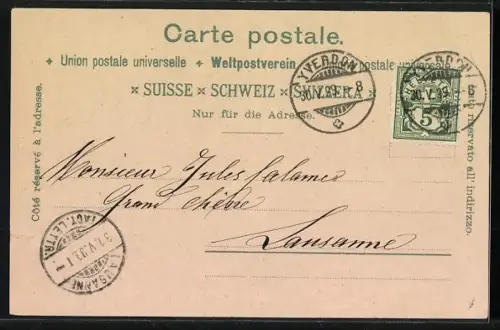 Carte postale.
Union postale universelle + Weltpostverein postale universale
× SUISSE × SCHWEIZ × SVIZZERA ×
Nur für die Adresse.
Côté réservé à l'adresse.
riservato all' indirizzo.
YVERDON
30.V.99.-8
YVERDON
30.V.99.-8
5
Monsieur Jules Calame
Grand Chêne
Lausanne
LAUSANNE
FACT. LETTR.